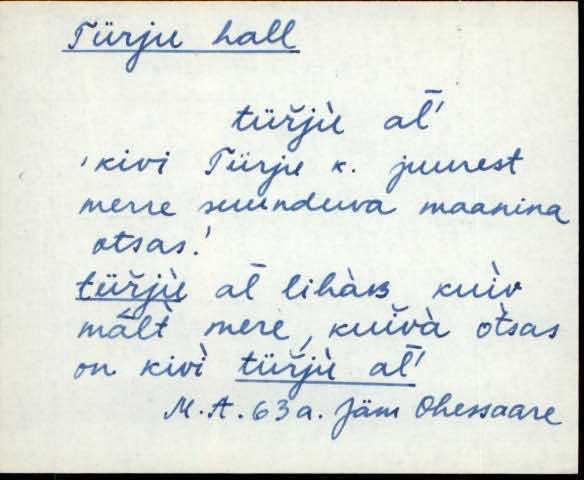 Türju hall
tüřjù al̄'
'kivi Türju k. juurest
merre suunduva maanina
otsas.'
tüřjù al̄ lihàʙ kuìv
mält̀ mere, kuivà otsas
on kivì tüřjù al̄'
M.A. 63a. Jäm Ohessaare